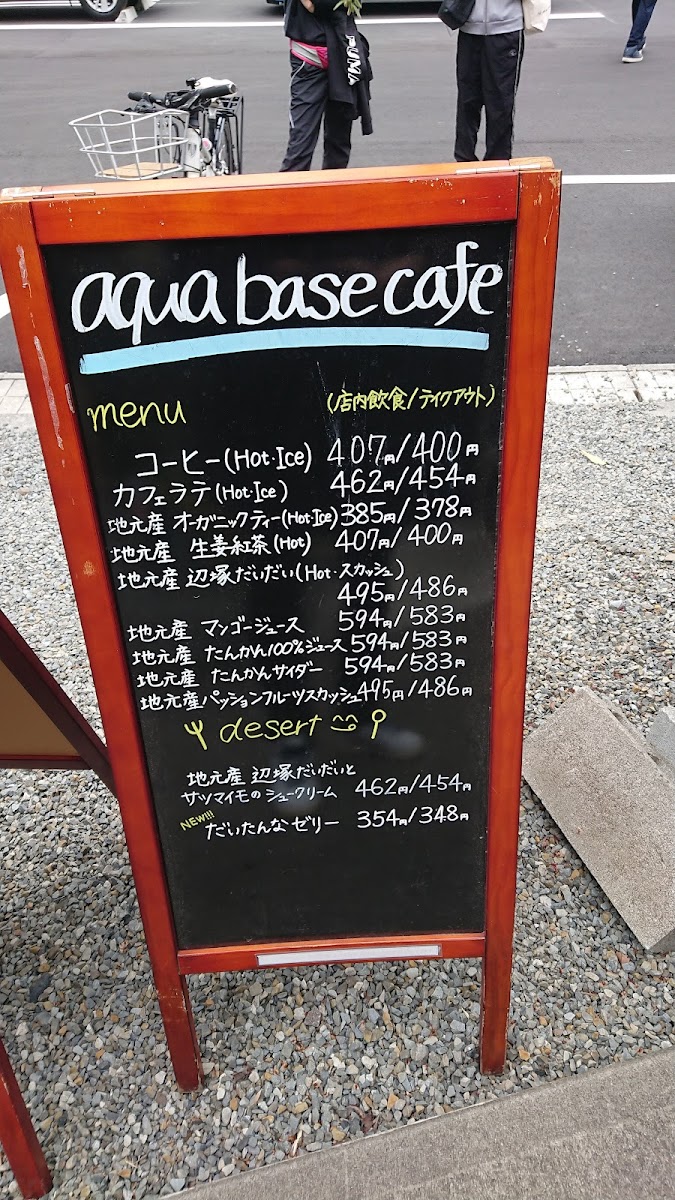 PUMA
aqua base cafe
menu (店内飲食/テイクアウト)
コーヒー(Hot・Ice) 407円/400円
カフェラテ(Hot・Ice) 462円/454円
地元産 オーガニックティー(Hot・Ice) 385円/378円
地元産 生姜紅茶(Hot) 407円/400円
地元産 辺塚だいだい(Hot・スカッシュ)
495円/486円
地元産 マンゴージュース 594円/583円
地元産 たんかん100%ジュース 594円/583円
地元産 たんかんサイダー 594円/583円
地元産パッションフルーツスカッシュ495円/486円
desert
地元産 辺塚だいだいと
サツマイモのシュークリーム 462円/454円
NEW!!! だいたんなゼリー 354円/348円